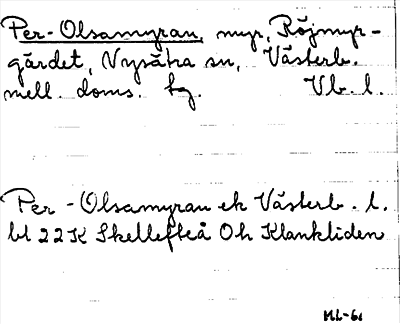 Per-Olsamyran, myr, Röjmyr-
gärdet, Nysätra sn, Västerb.
mell. doms. tg. Vb. l.
Per-Olsamyran ek Västerb. l.
bl 22K Skellefteå Oh Klankliden
ML-61